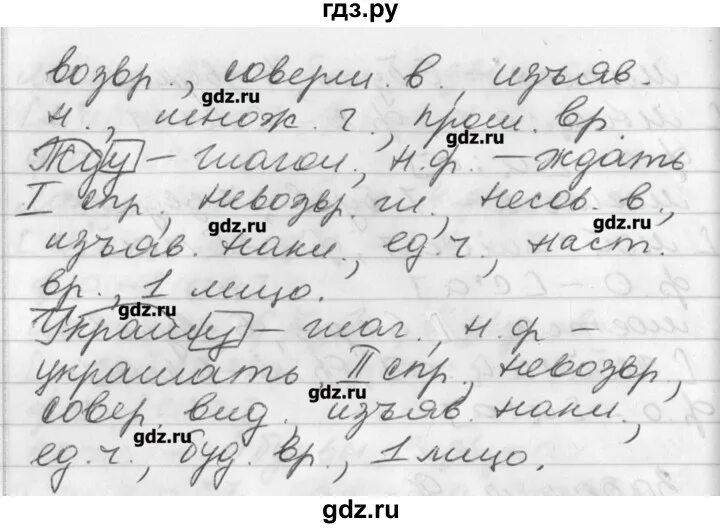 гдз.ру
возвр., соверш. в., изъяв.
gdz.ru
н., множ. ч., прош. вр.
gdz.ru
Жду – глагол, н.ф. – ждать
I спр., невозвр. гл., несов. в.,
gdz.ru
gdz.ru
изъяв. накл., ед. ч., наст.
вр., 1 лицо.
Украшу – глаг., н. ф –
gdz.ru
украшать, II спр., невозвр.,
gdz.ru
совер. вид., изъяв. накл.,
gdz.ru
ед. ч., буд. вр., 1 лицо.
gdz.ru